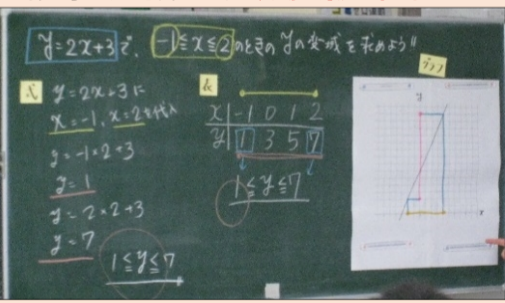 y=2x+3で、-1≦x≦2のときのyの変域を求めよう!!
式
y=2x+3に
x=-1, x=2を代入
y=-1×2+3
y=1
y=2×2+3
y=7
1≦y≦7
表
x -1 0 1 2
y 1 3 5 7
1≦y≦7
グラフ
y
x